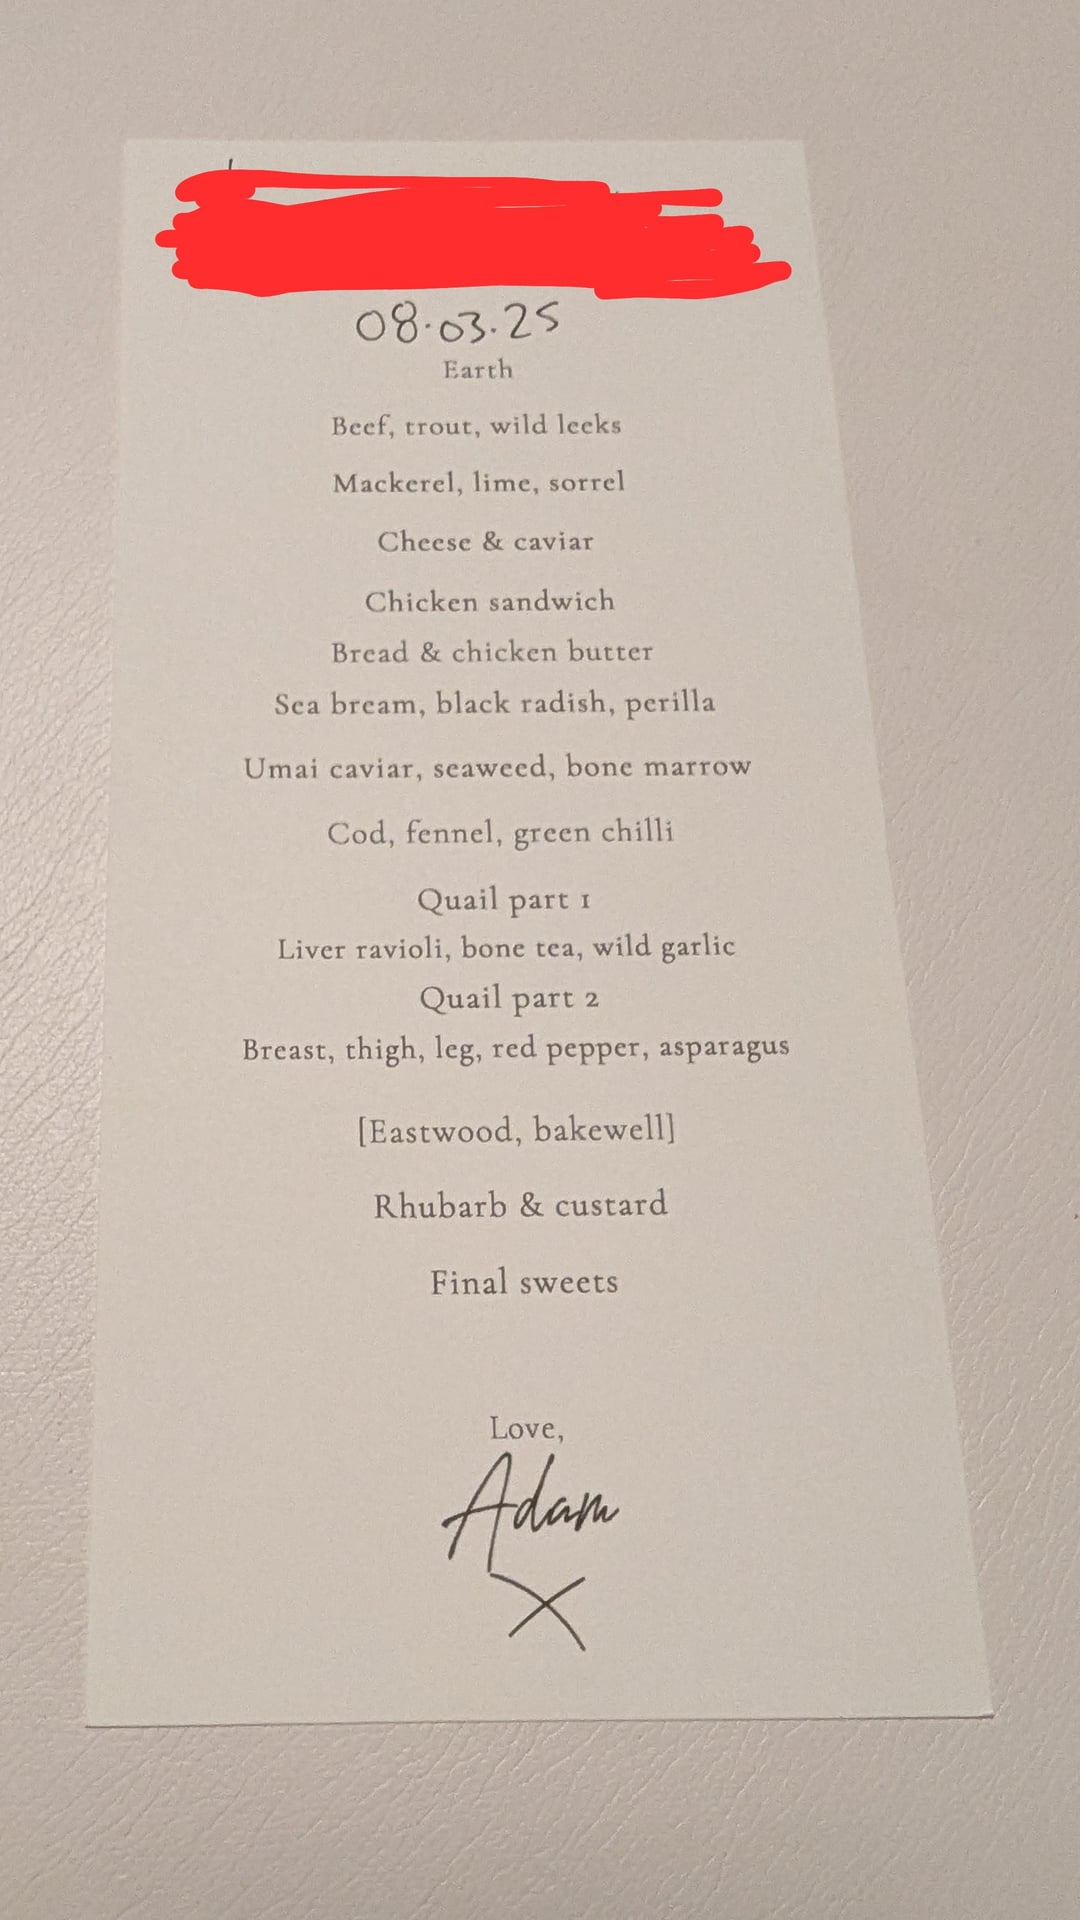 08.03.25
Earth
Beef, trout, wild leeks
Mackerel, lime, sorrel
Cheese & caviar
Chicken sandwich
Bread & chicken butter
Sea bream, black radish, perilla
Umai caviar, seaweed, bone marrow
Cod, fennel, green chilli
Quail part 1
Liver ravioli, bone tea, wild garlic
Quail part 2
Breast, thigh, leg, red pepper, asparagus
[Eastwood, bakewell]
Rhubarb & custard
Final sweets
Love,
Adam
X